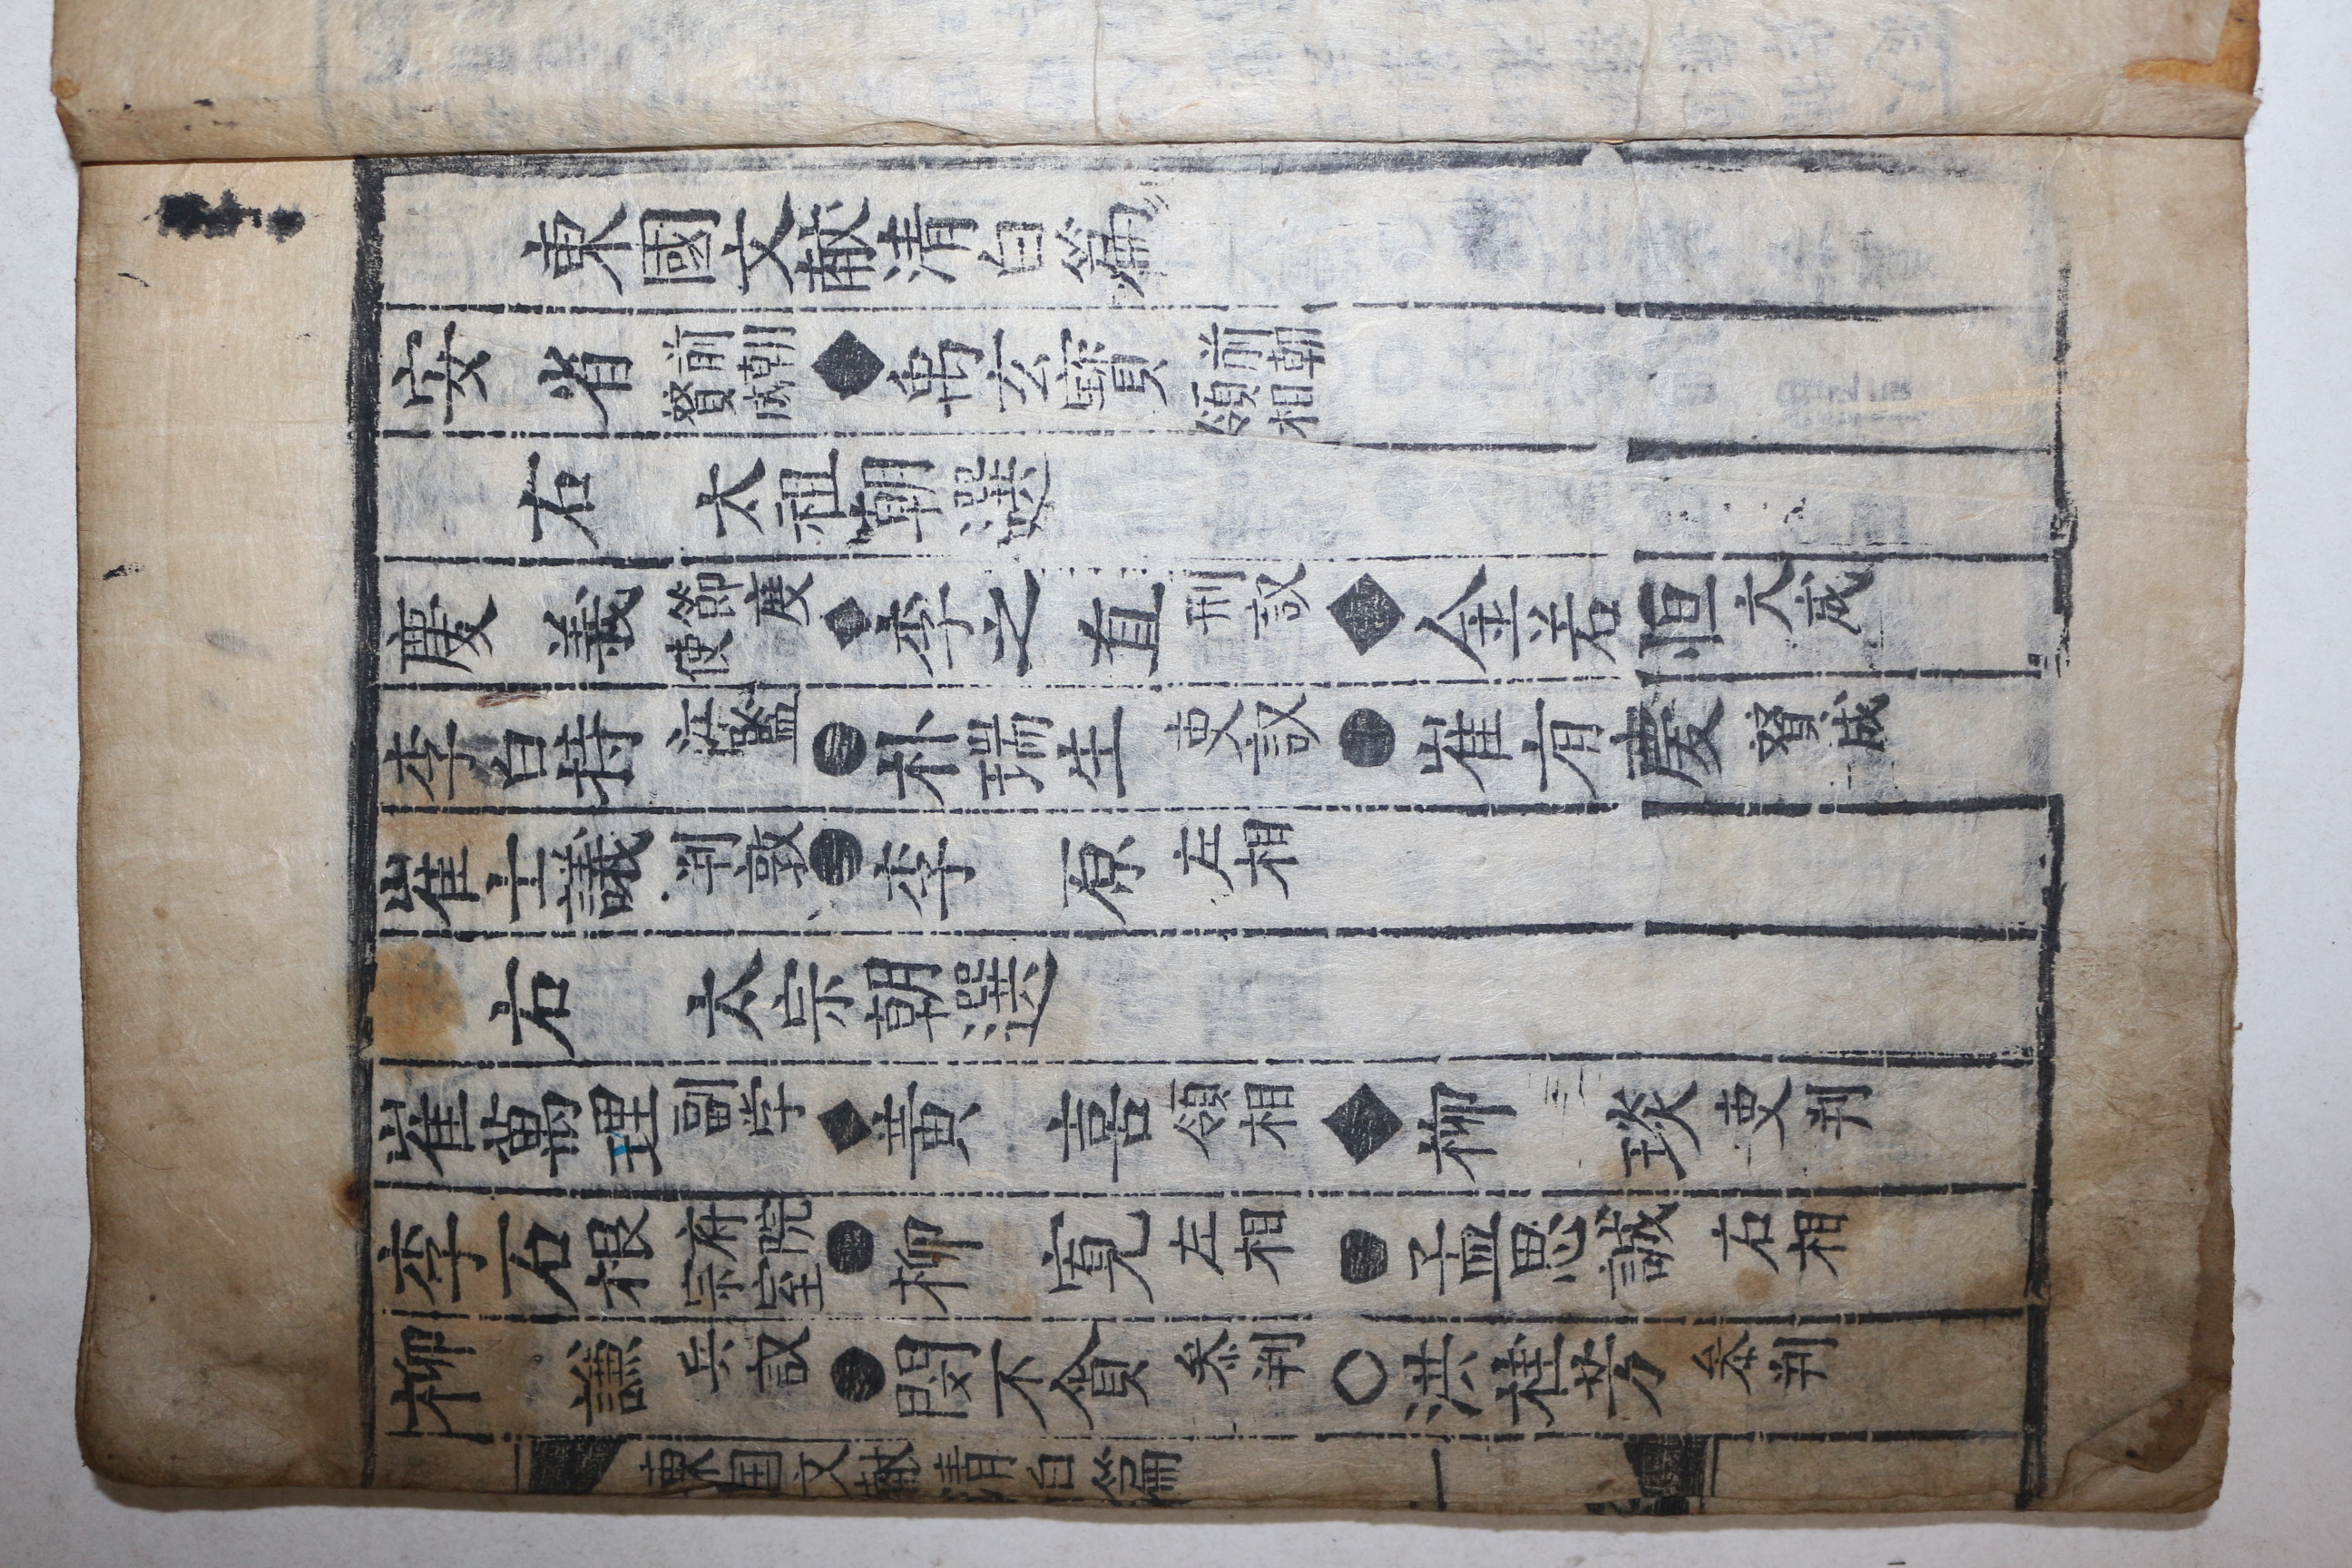 東國文献清白篇
安省 前朝贊成 ◆ 禹玄寶 前朝領相
右 太祖朝選
慶義 節度使 ◆ 李之直 刑議 ◆ 金若恒 大成
李白持 江監 ● 朴瑞生 吏議 ● 崔有慶 贊成
崔士議 判敦 ● 李原 左相
右 太宗朝選
崔萬理 副学 ◆ 黃喜 領相 ◆ 柳琰 吏判
李石根 府院宗室 ● 柳寬 左相 ● 孟思誠 右相
柳謙 兵議 ● 閔不貪 参判 ◇ 洪桂芳 参判
東国文献清白篇 一